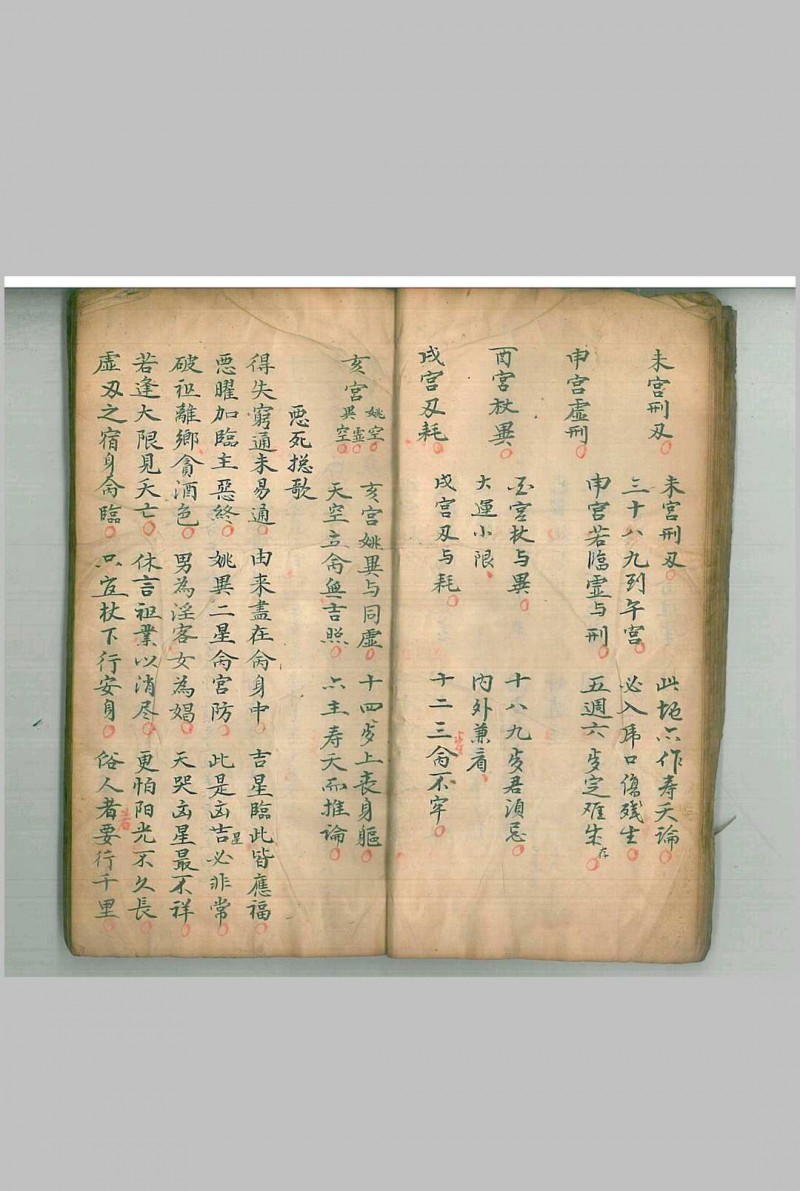 未宫刑刄
未宫刑刄 此地亦作寿夭論
三十八九到午宫 必入乕口傷残生
申宫虚刑
申宫若臨虚与刑 五週六歩定难生存
酉宫杖異
酉宫杖与異 十八九歩君湏忌
大運小限 内外兼看
戌宫刄耗
戌宫刄与耗 十二三命不牢
歩
亥宫姚空異虚空
亥宫姚異与同虚 十四歩上丧身軀
天空立命無吉照 亦主寿夭而推論
悪死捴歌
得失窮通未易通 由来盡在命身中 吉星臨此皆應福
悪曜加臨主惡終 姚異二星命宫防 此是凶吉星必非常
破祖離鄉貪酒色 男為淫客女為娼 天哭凶星最不祥
若逢大限見夭亡 休言祖業以消尽 更怕阳光不久長
虚刄之宿身命臨 只宜杖下行安身 俗人者要行千里